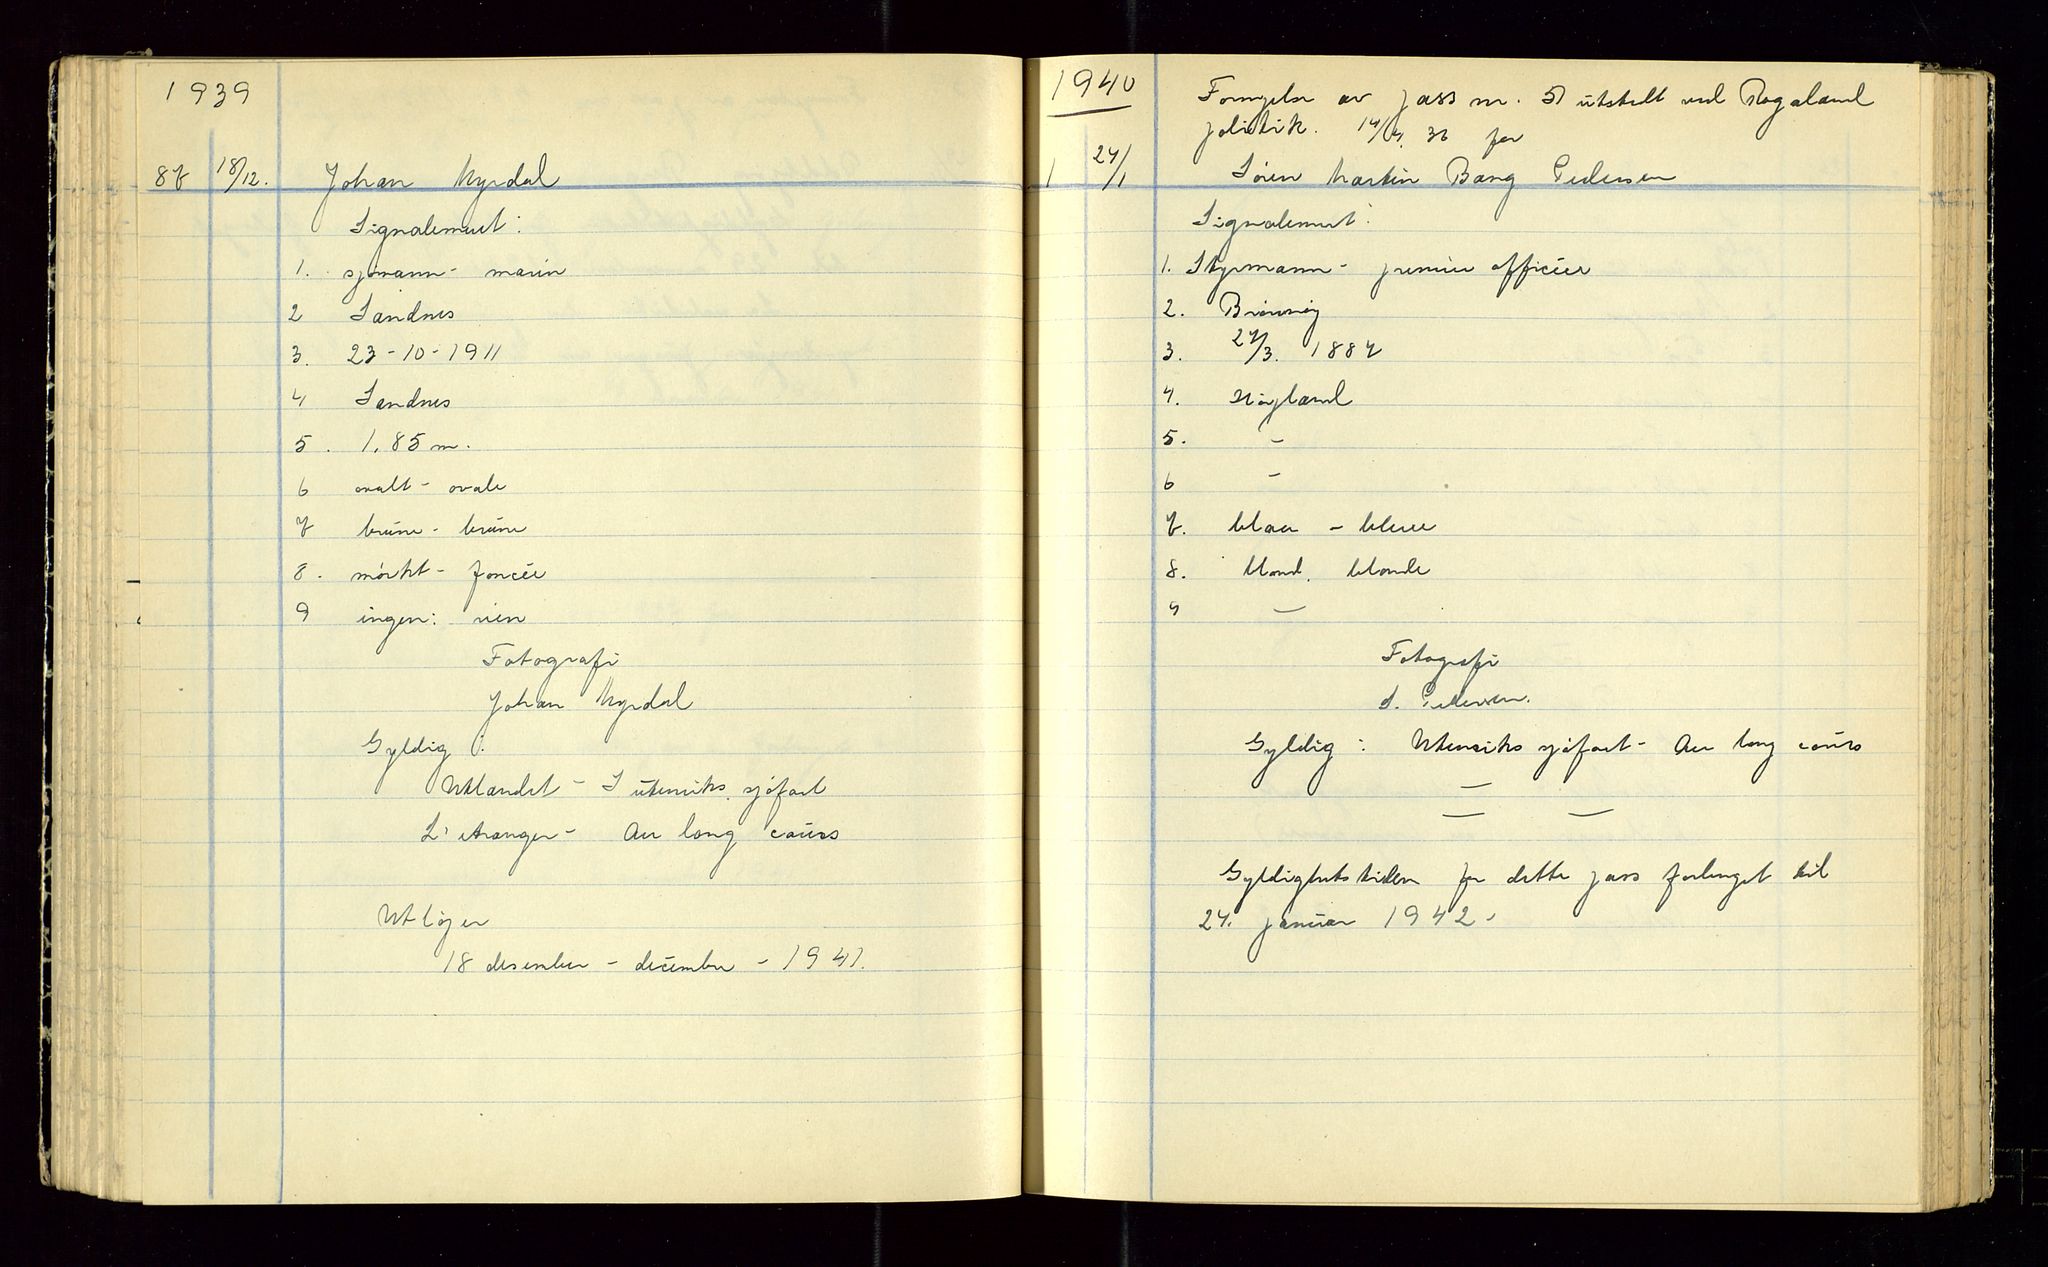 1939
87 18/12. Johan Myrdal
Signalement:
1. sjømann - marin
2 Sandnes
3. 23-10-1911
4 Sandnes
5. 1,85 m.
6 ovalt - ovale
7 brune - brune
8. mørkt - foncée
9 ingen: rien
Fotografi
Johan Myrdal
Gyldig:
Utlandet - I utenriks sjøfart
L'etranger - Au long cours
Utløper
18 desember - décembre - 1941.
1940
Fornyelse av pass nr. 51 utstedt ved Rogaland
politik. 14/4. 36 for
1 24/1 Søren Martin Bang Pedersen
Signalement:
1. Styrmann - premier officier
2. Brønnøy
3. 27/3. 1887
4. Høyland
5. -
6 -
7. blaa - bleue
8. blond. blonde
9 -
Fotografi
S. Pedersen.
Gyldig: Utenriks sjøfart - Au long cours
Gyldighetstiden for dette pass forlenget til
24. januar 1942 -